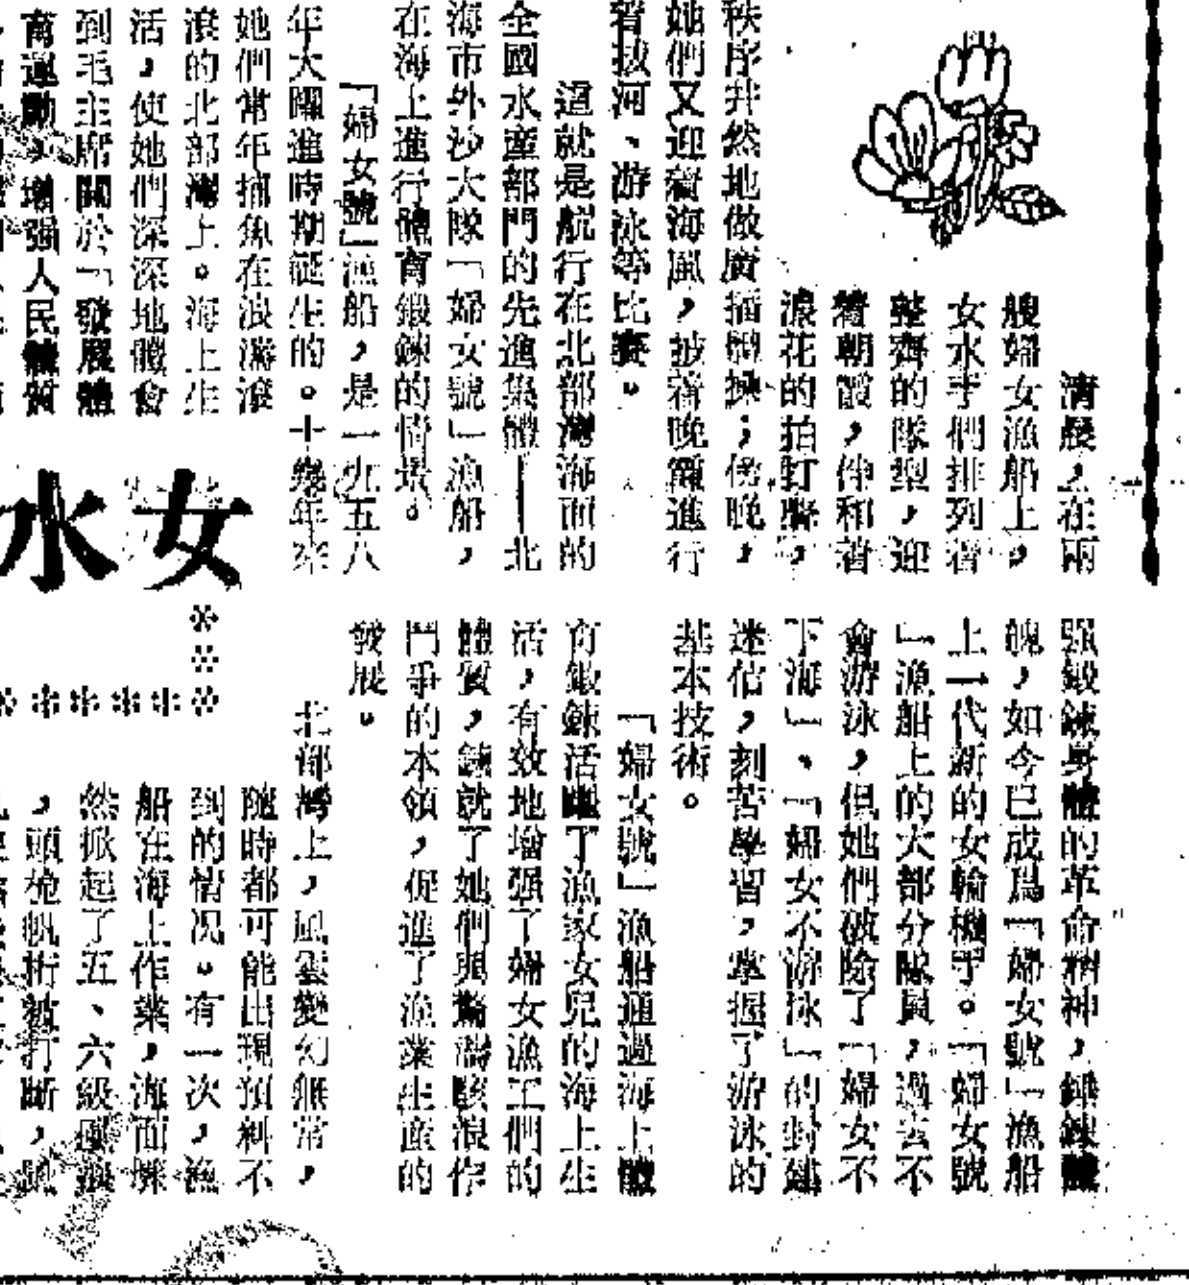 清晨，在兩
艘婦女漁船上，
女水手們排列着
整齊的隊型，迎
着朝霞，伴和着
浪花的拍打聲，
秩序井然地做廣播體操；傍晚，
她們又迎着海風，披着晚霞進行
着拔河、游泳等比賽。
這就是航行在北部灣海面的
全國水產部門的先進集體——北
海市外沙大隊「婦女號」漁船，
在海上進行體育鍛鍊的情景。
「婦女號」漁船，是一九五八
年大躍進時期誕生的。十幾年來
她們常年捕魚在浪濤滾
滾的北部灣上。海上生
活，使她們深深地體會
到毛主席關於「發展體
育運動，增强人民體質
女水
强鍛鍊身體的革命精神，錘鍊體
魄，如今已成爲「婦女號」漁船
上一代新的女輪機手。「婦女號
」漁船上的大部分隊員，過去不
會游泳，但她們破除了「婦女不
下海」、「婦女不游泳」的封建
迷信，刻苦學習，掌握了游泳的
基本技術。
「婦女號」漁船通過海上體
育鍛鍊活躍了漁家女兒的海上生
活，有效地增强了婦女漁工們的
體質，鍊就了她們與驚濤駭浪作
鬥爭的本領，促進了漁業生產的
發展。
北部灣上，風雲變幻無常，
隨時都可能出現預料不
到的情况。有一次，漁
船在海上作業，海面驟
然掀起了五、六級風浪
，頭桅帆桁被打斷，風